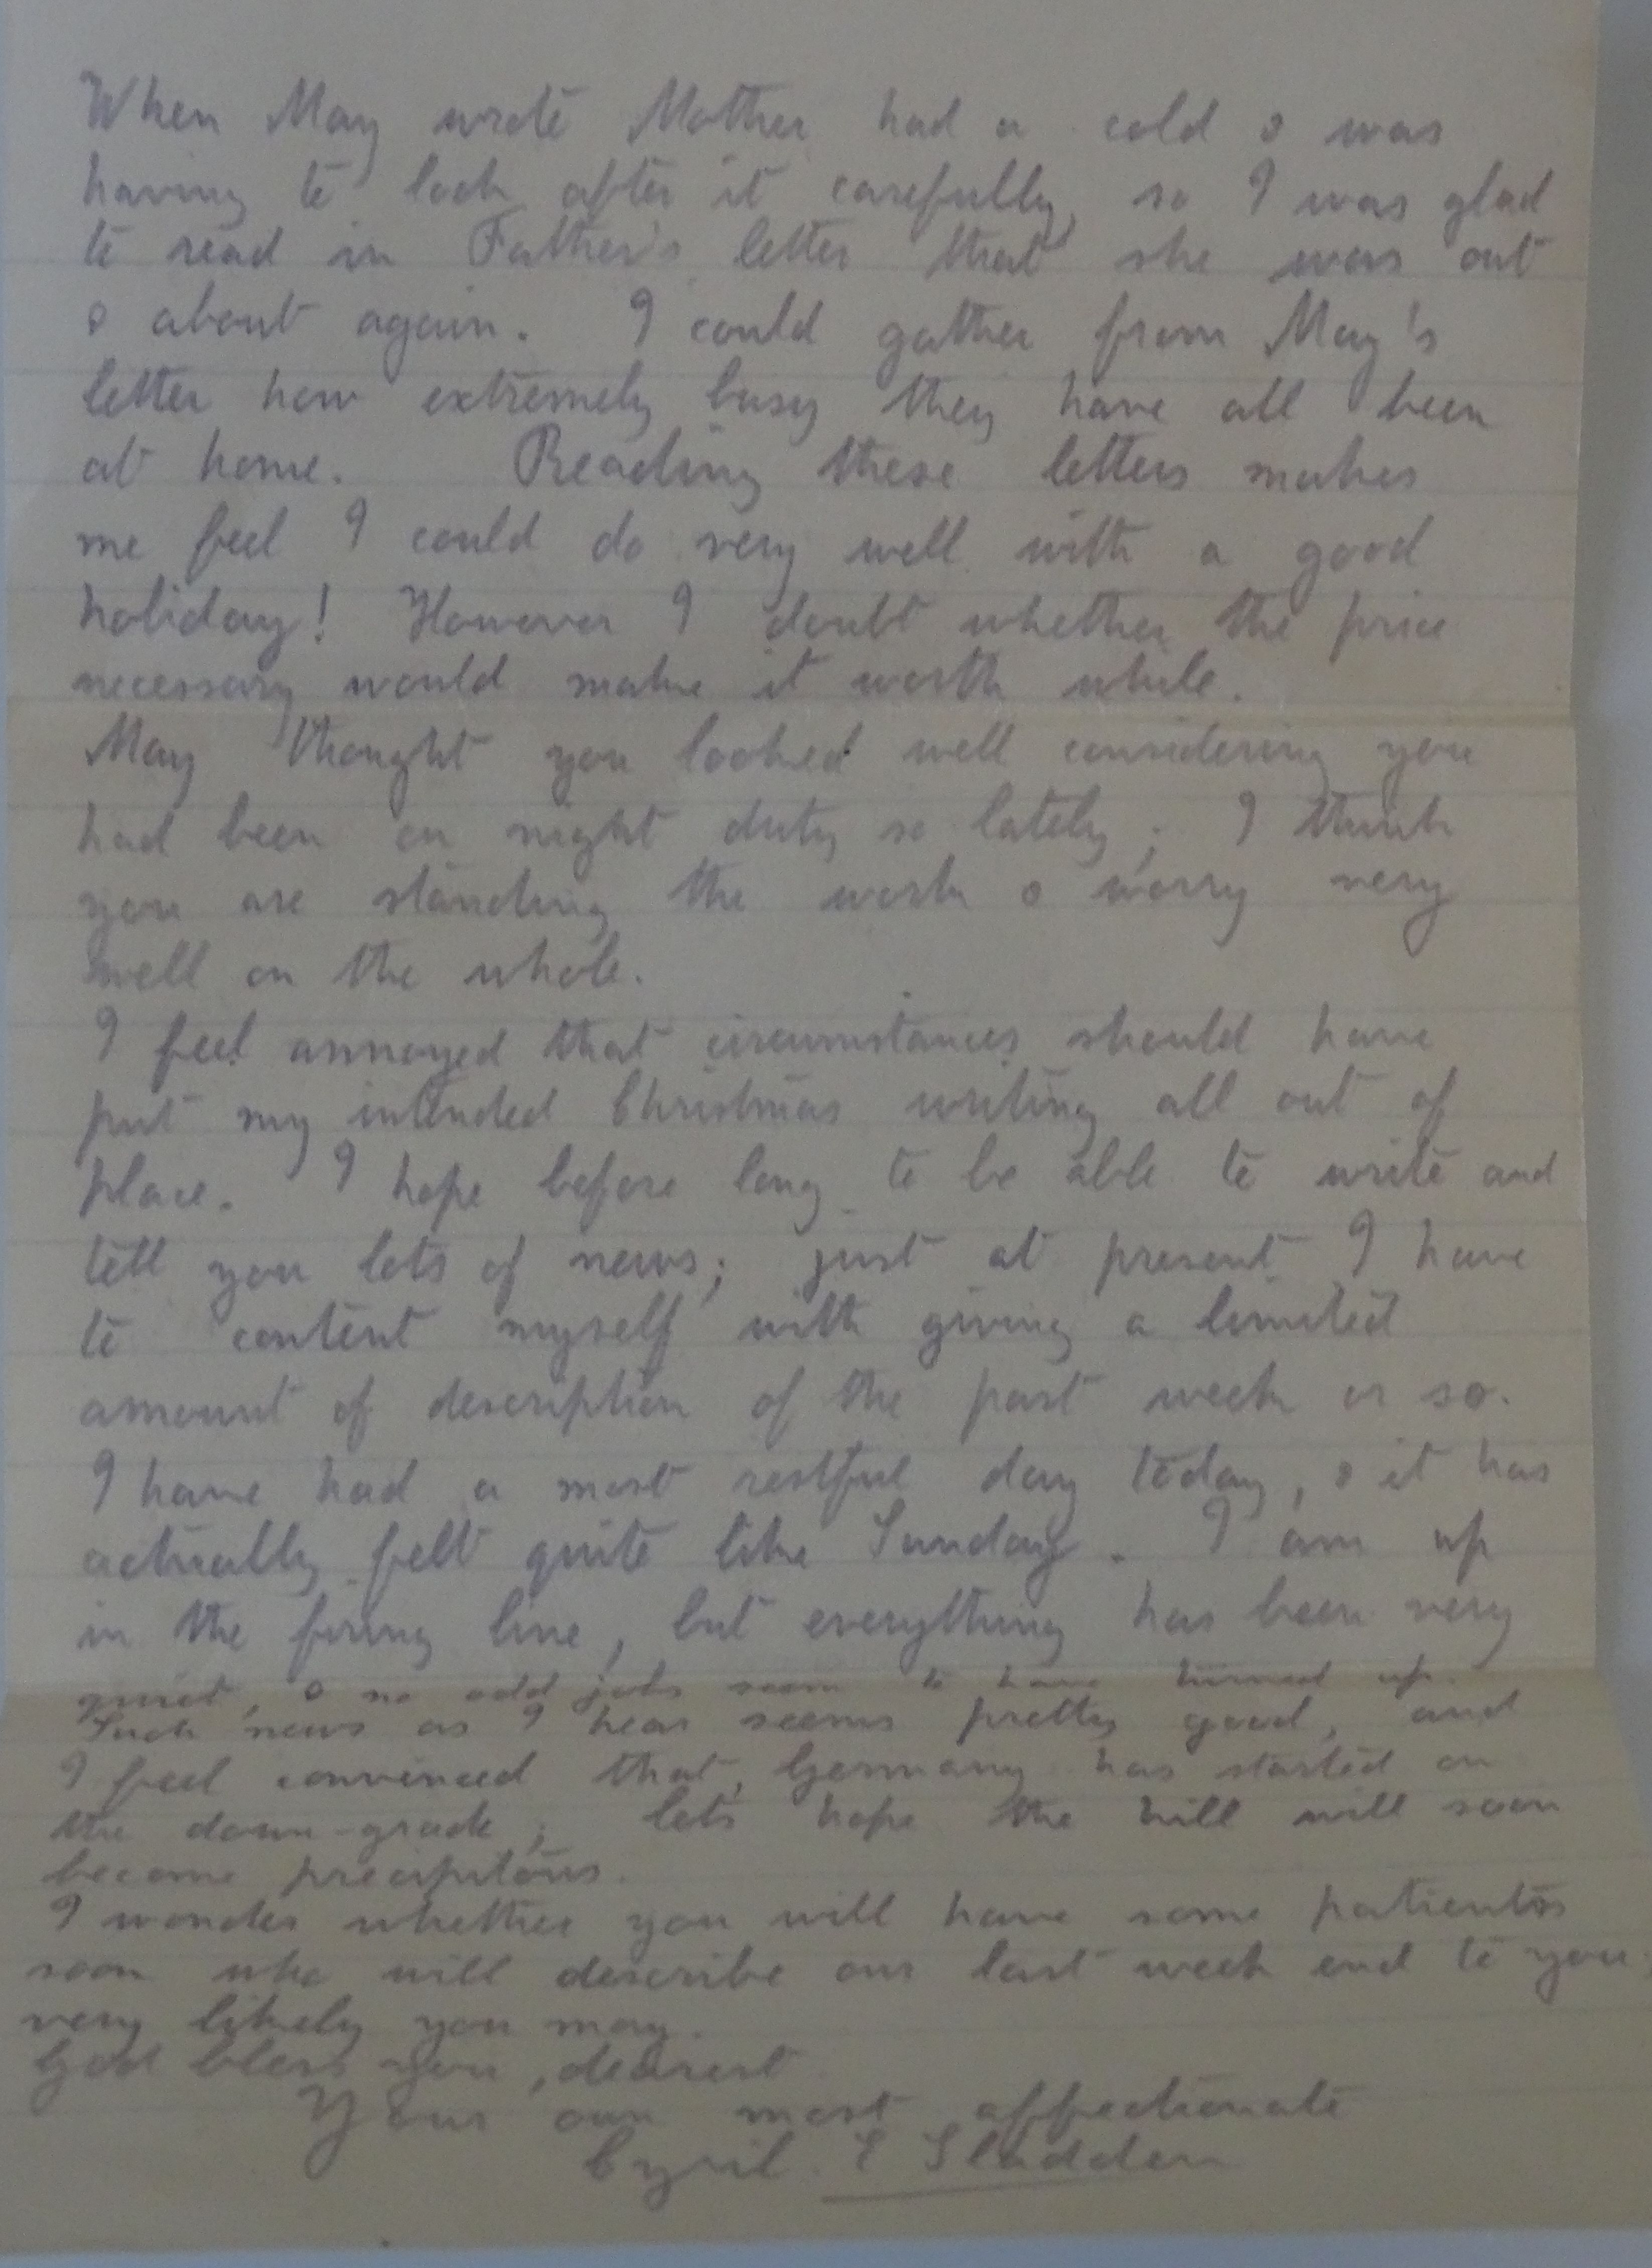 When May wrote Mother had a cold & was
having to look after it carefully, so I was glad
to read in Father's letter that she was out
& about again. I could gather from May's
letter how extremely busy they have all been
at home. Reading these letters makes
me feel I could do very well with a good
holiday! However I doubt whether the price
necessary would make it worth while.
May thought you looked well considering you
had been on night duty so lately; I think
you are standing the work & worry very
well on the whole.
I feel annoyed that circumstances should have
put my intended Christmas writing all out of
place. I hope before long to be able to write and
tell you lots of news; just at present I have
to content myself with giving a limited
amount of description of the past week or so.
I have had a most restful day today, & it has
actually felt quite like Sunday. I am up
in the firing line, but everything has been very
quiet, & no odd jobs seem to have turned up.
Such news as I hear seems pretty good, and
I feel convinced that Germany has started on
the down-grade; lets hope the hill will soon
become precipitous.
I wonder whether you will have some patients
soon who will describe our last week end to you;
very likely you may.
God bless you, dearest
Your own most affectionate
Cyril E Sladden